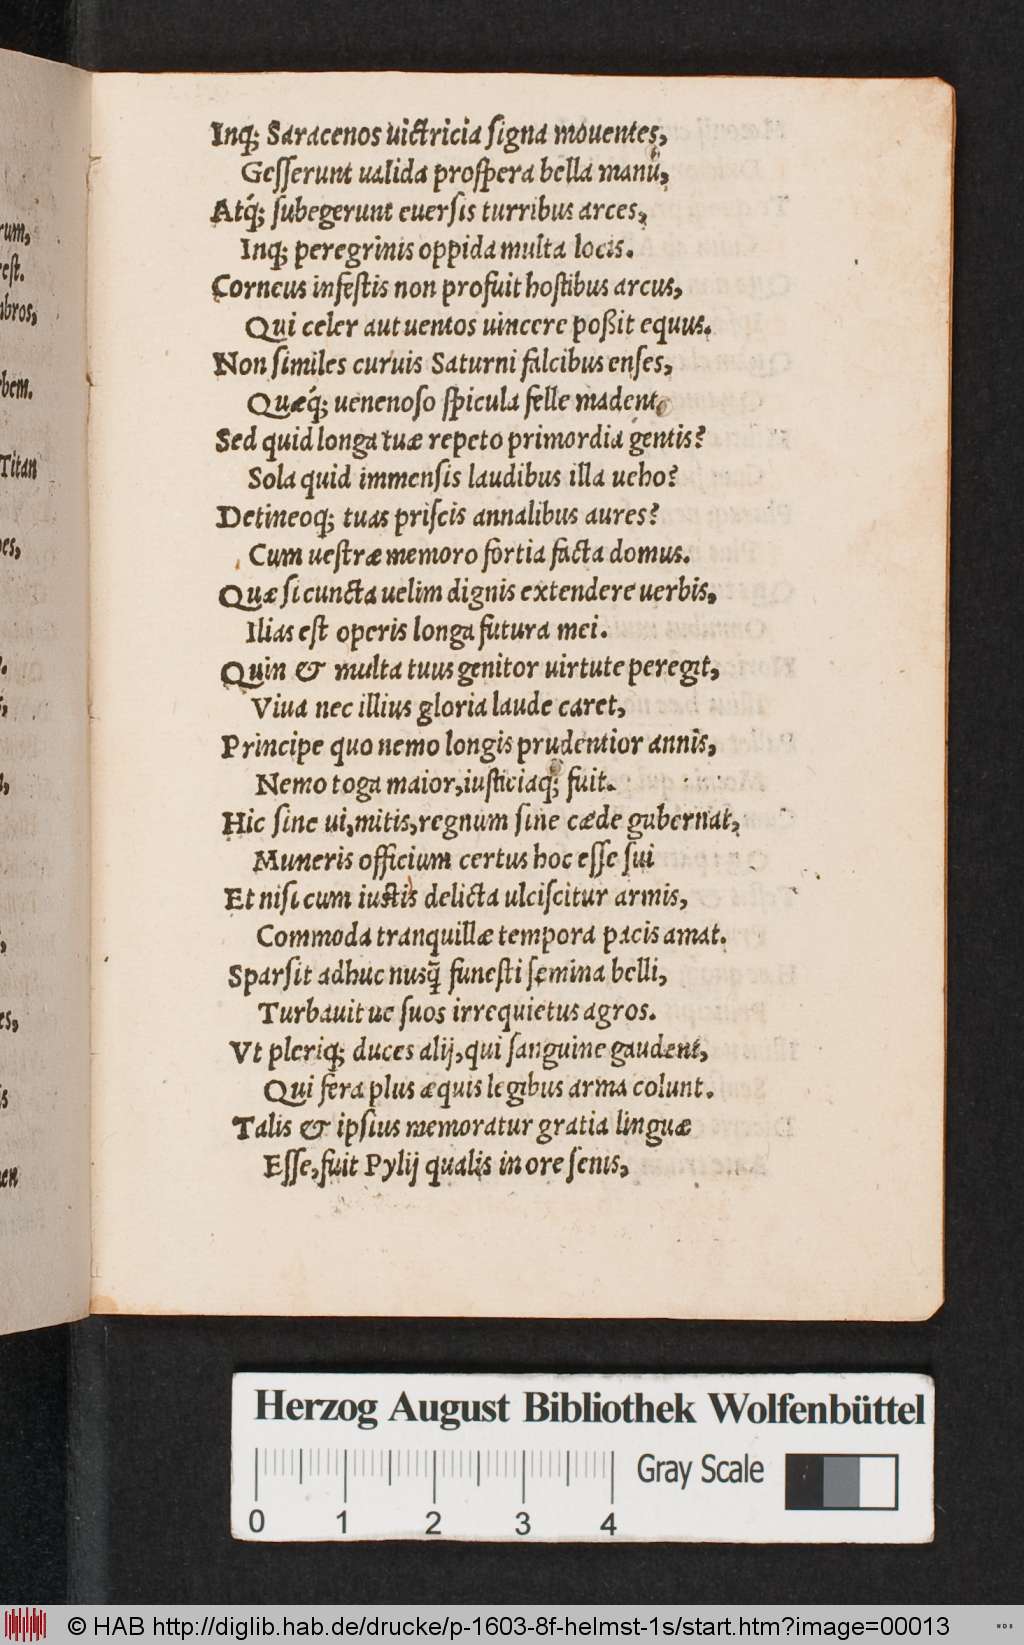 Inq; Saracenos uictricia signa mouentes,
Gesserunt ualida prospera bella manu,
Atq́; subegerunt euersis turribus arces,
Inq; peregrinis oppida multa locis.
Corneus infestis non profuit hostibus arcus,
Qui celer aut uentos uincere poßit equus.
Non similes curuis Saturni falcibus enses,
Quæq́; uenenoso spicula felle madent.
Sed quid longa tuæ repeto primordia gentis?
Sola quid immensis laudibus illa ueho?
Detineoq; tuas priscis annalibus aures?
Cum uestræ memoro fortia facta domus.
Quæ si cuncta uelim dignis extendere uerbis,
Ilias est operis longa futura mei.
Quin & multa tuus genitor uirtute peregit,
Viua nec illius gloria laude caret,
Principe quo nemo longis prudentior annis,
Nemo toga maior, iusticiaq; fuit.
Hic sine ui, mitis, regnum sine cæde gubernat,
Muneris officium certus hoc esse sui
Et nisi cum iustis delicta ulciscitur armis,
Commoda tranquillæ tempora pacis amat.
Sparsit adhuc nusq̃ funesti semina belli,
Turbauit ue suos irrequietus agros.
Vt pleriq; duces alij, qui sanguine gaudent,
Qui fera plus æquis legibus arma colunt.
Talis & ipsius memoratur gratia linguæ
Esse, fuit Pylij qualis in ore senis,
rum,
est.
bros,
bem.
Titan
es,
es,
en
Herzog August Bibliothek Wolfenbüttel
Gray Scale
0 1 2 3 4
© HAB http://diglib.hab.de/drucke/p-1603-8f-helmst-1s/start.htm?image=00013